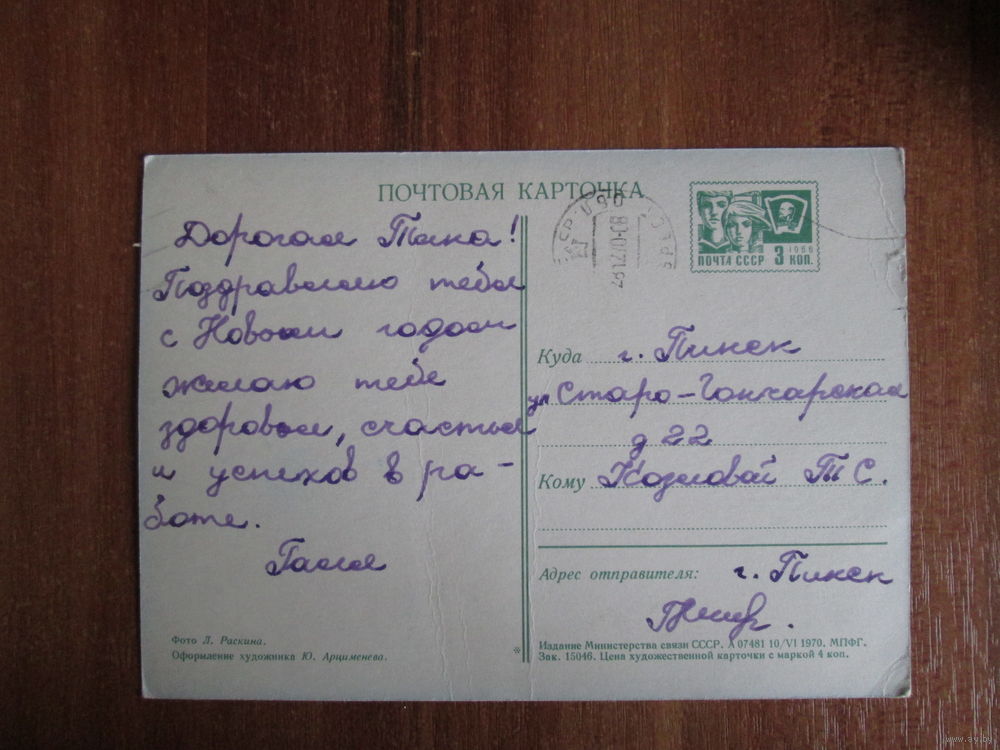 ПОЧТОВАЯ КАРТОЧКА
Дорогая Тана!
Поздравляю тебя
с Новым годом
желаю тебе
здоровья, счастья
и успехов в ра-
боте.
Галя
Фото Л. Раскина.
Оформление художника Ю. Арцименева.
ПОЧТА СССР 3 КОП.
1966
Куда г. Пинск
ул Старо-Гончарская
д 22
Кому Козловой Т С.
Адрес отправителя: г. Пинск
Издание Министерства связи СССР. А 07481 10/VI 1970. МПФГ.
Зак. 15046. Цена художественной карточки с маркой 4 коп.
www.ay.by